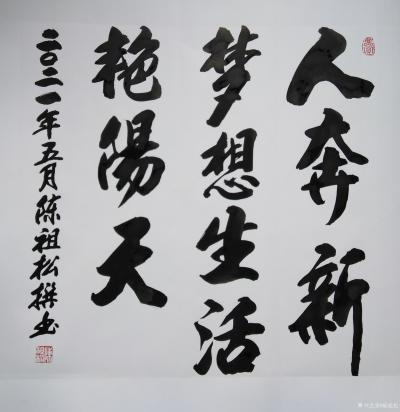 人奔新
梦想生活
艳陽天
二〇二一年五月陈祖松撰书